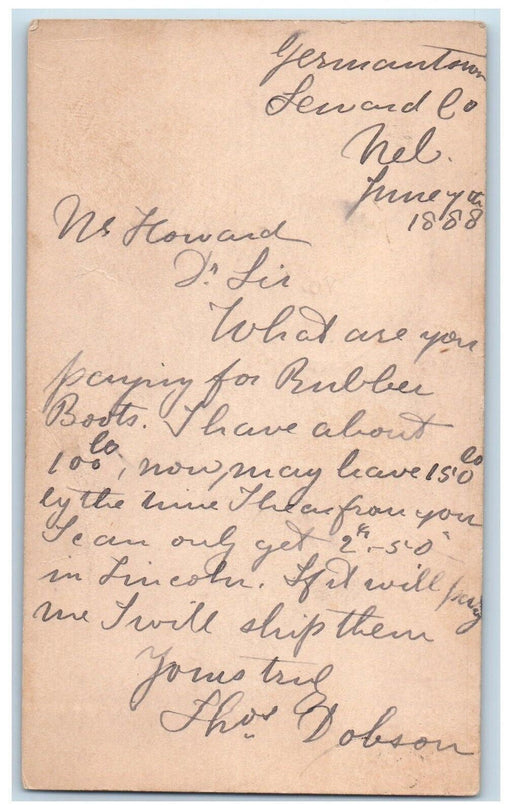 Germantown
Seward Co
Neb.
June 7th
1888
Mr Howard
Dr Sir
What are you
paying for Rubber
Boots. I have about
100 lb, now, may have 150 lb
by the time I hear from you
I can only get 2 -50
in Lincoln. If it will pay
me I will ship them
Yours truly
Thos Dobson